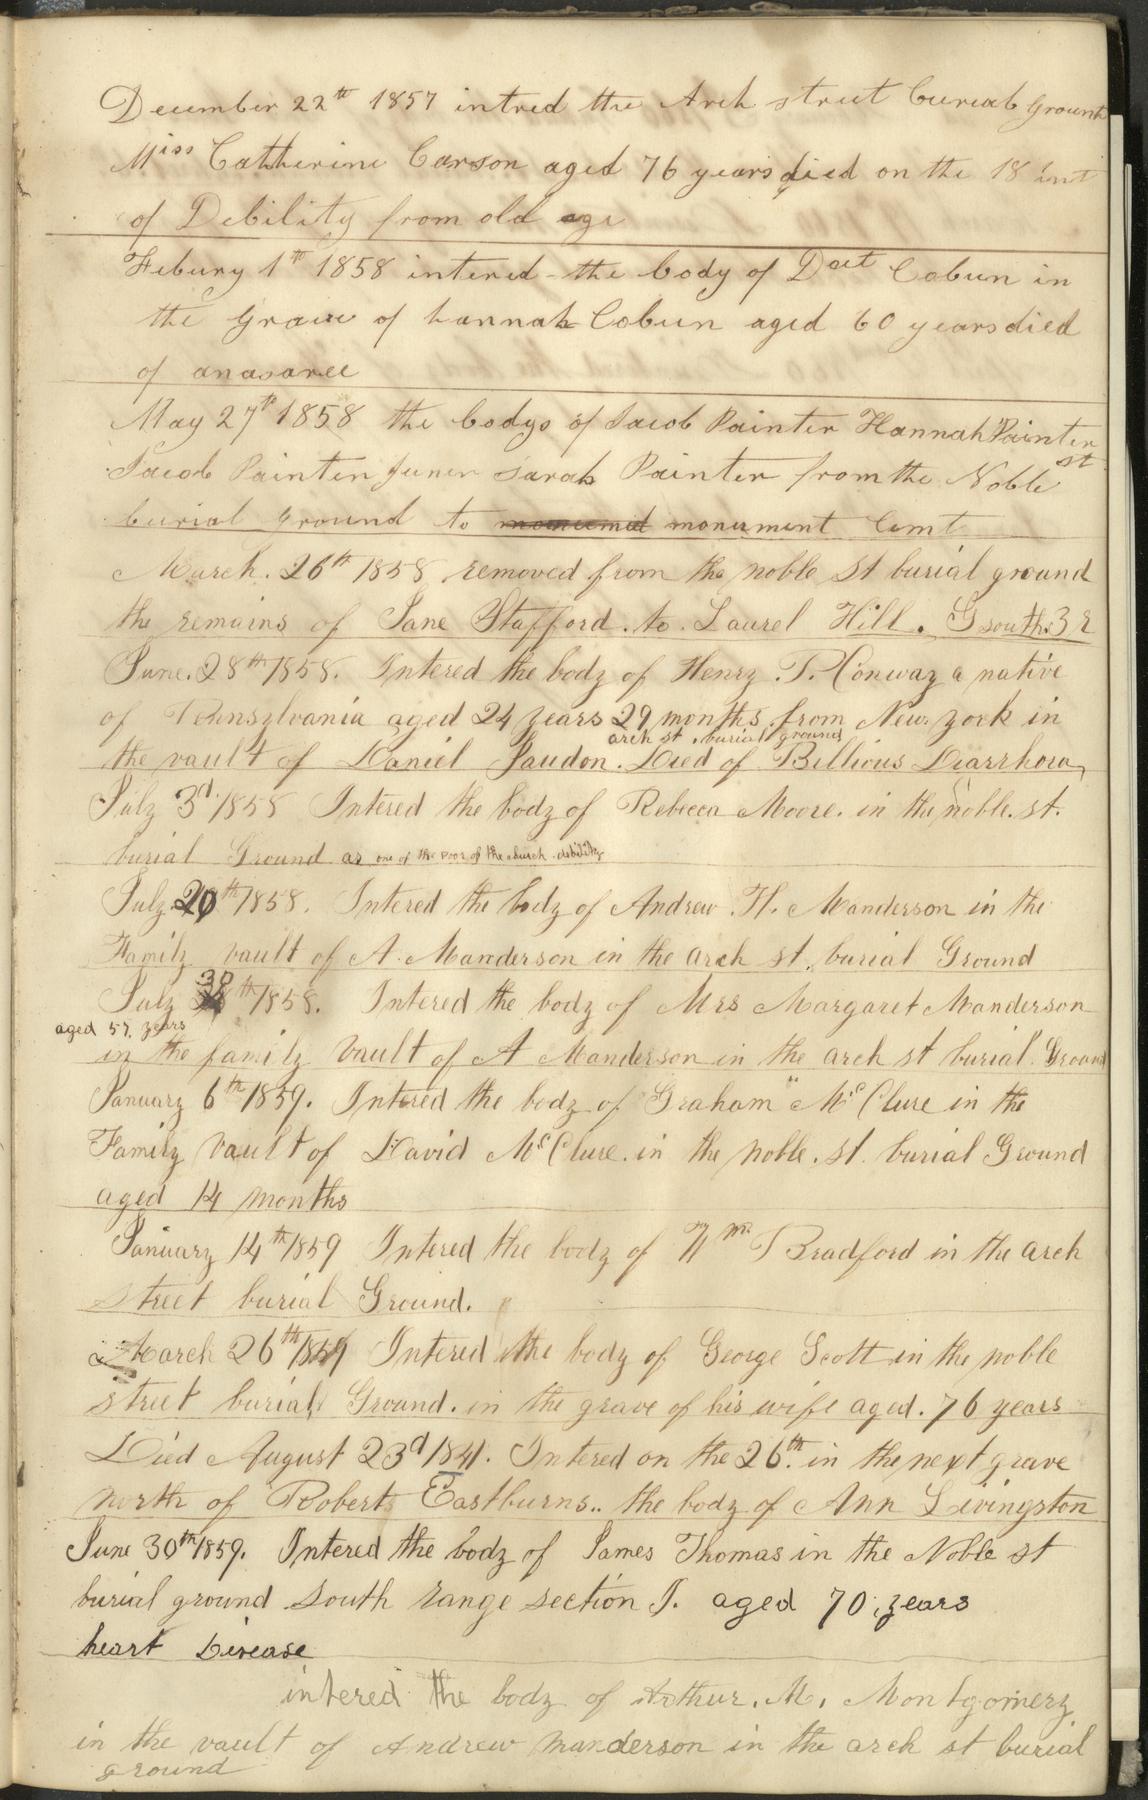 December 22th 1857 intred the Arch street burial Ground
Miss Catherine Carson aged 76 years died on the 18 int
of Debility from old age
Febury 1th 1858 intered the body of Dait Cobun in
the Grave of hannah Cobun aged 60 years died
of anasaree
May 27th 1858 the bodys of Jacob Painter Hannah Painter
Jacob Painter Juner Sarah Painter from the Noble st
burial ground to monument Cemt
March. 26th 1858 removed from the noble St burial ground
the remains of Jane Stafford. to. Laurel Hill. G south. 32
June. 28th 1858. Intered the body of Henry. P. Conway a native
of Pennsylvania aged 24 years 29 months. from New. york in
arch st. burial ground
the vault of Daniel Saudon. Died of Billious Diarrhoea
July 3d 1858 Intered the body of Rebecca Moore. in the noble. st.
burial Ground as one of the poor of the church. debility
July 20th 1858. Intered the body of Andrew. H. Manderson in the
Family vault of A. Manderson in the arch st. burial Ground
July 30th 1858. Intered the body of Mrs Margaret Manderson
aged 57. years
in the family vault of A Manderson in the arch st burial Ground
January 6th 1859. Intered the body of Graham Mc Clure in the
Family vault of David Mc Clure. in the noble. st. burial Ground
aged 14 months
January 14th 1859 Intered the body of Wm T Bradford in the arch
street burial Ground.
March 26th 1859 Intered the body of George Scott in the noble
street burial Ground. in the grave of his wife aged. 76 years
Died August 23d 1841. Intered on the 26th. in the next grave
north of Roberts Eastburns.. the body of Ann Livingston
June 30th 1859. Intered the body of James Thomas in the Noble st
burial ground South range section J. aged 70, years
heart Disease
intered the body of Arthur. M. Montgomery
in the vault of Andrew manderson in the arch st burial
ground